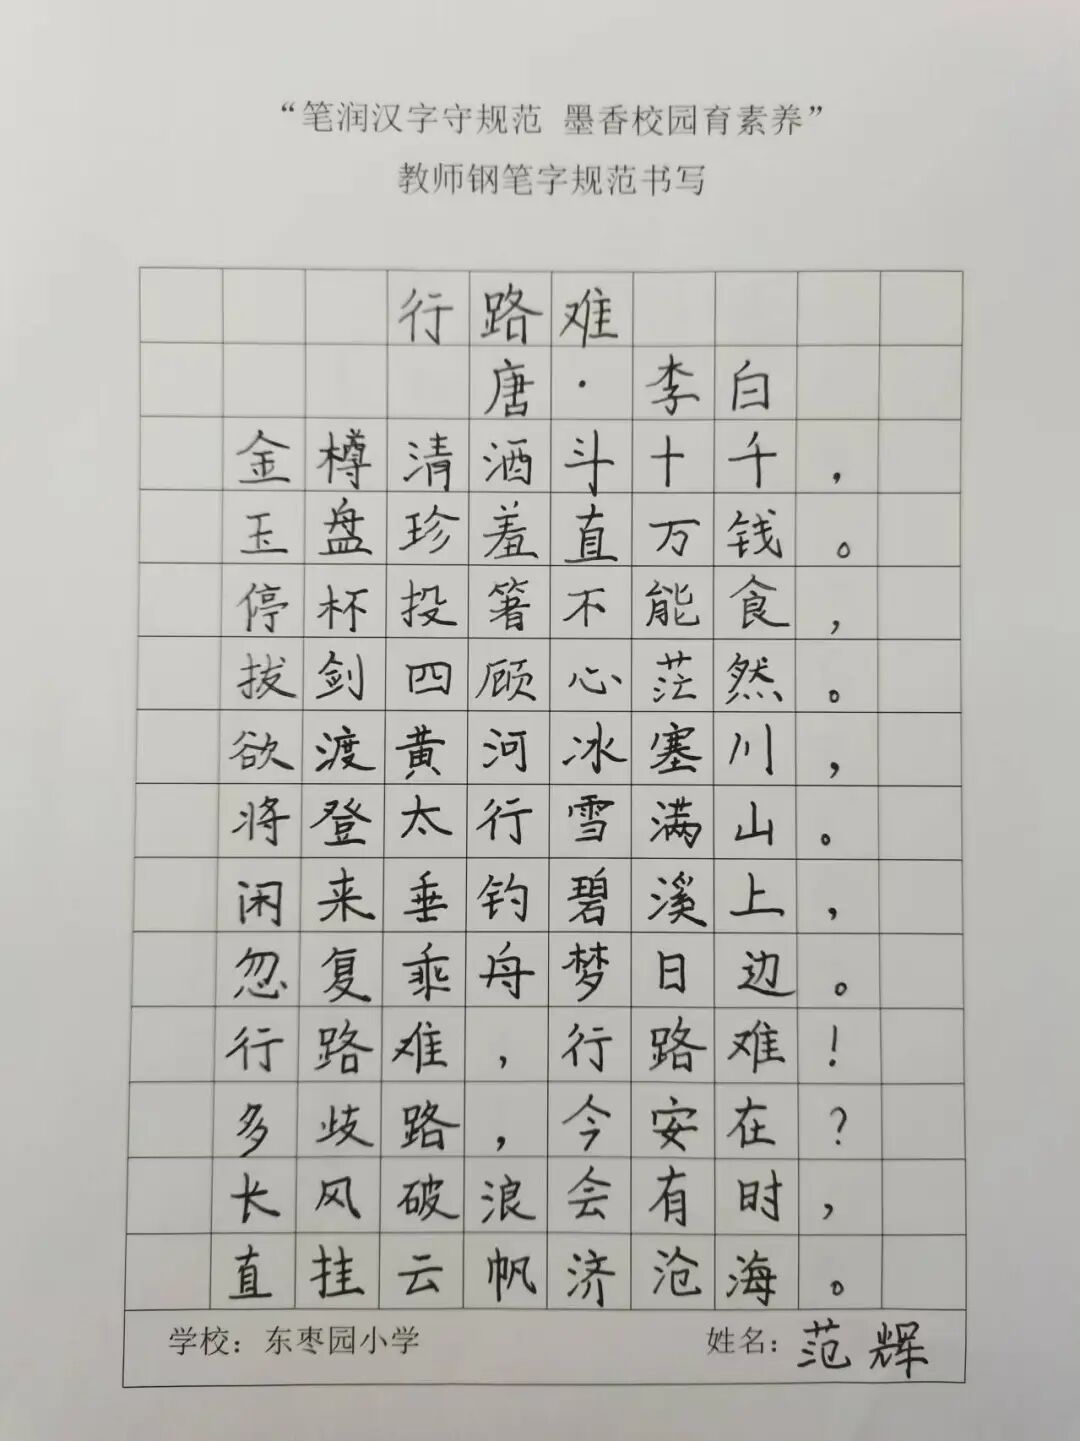 “笔润汉字守规范 墨香校园育素养”
教师钢笔字规范书写
行路难
唐·李白
金樽清酒斗十千，
玉盘珍羞直万钱。
停杯投箸不能食，
拔剑四顾心茫然。
欲渡黄河冰塞川，
将登太行雪满山。
闲来垂钓碧溪上，
忽复乘舟梦日边。
行路难，行路难！
多歧路，今安在？
长风破浪会有时，
直挂云帆济沧海。
学校：东枣园小学 姓名：范辉